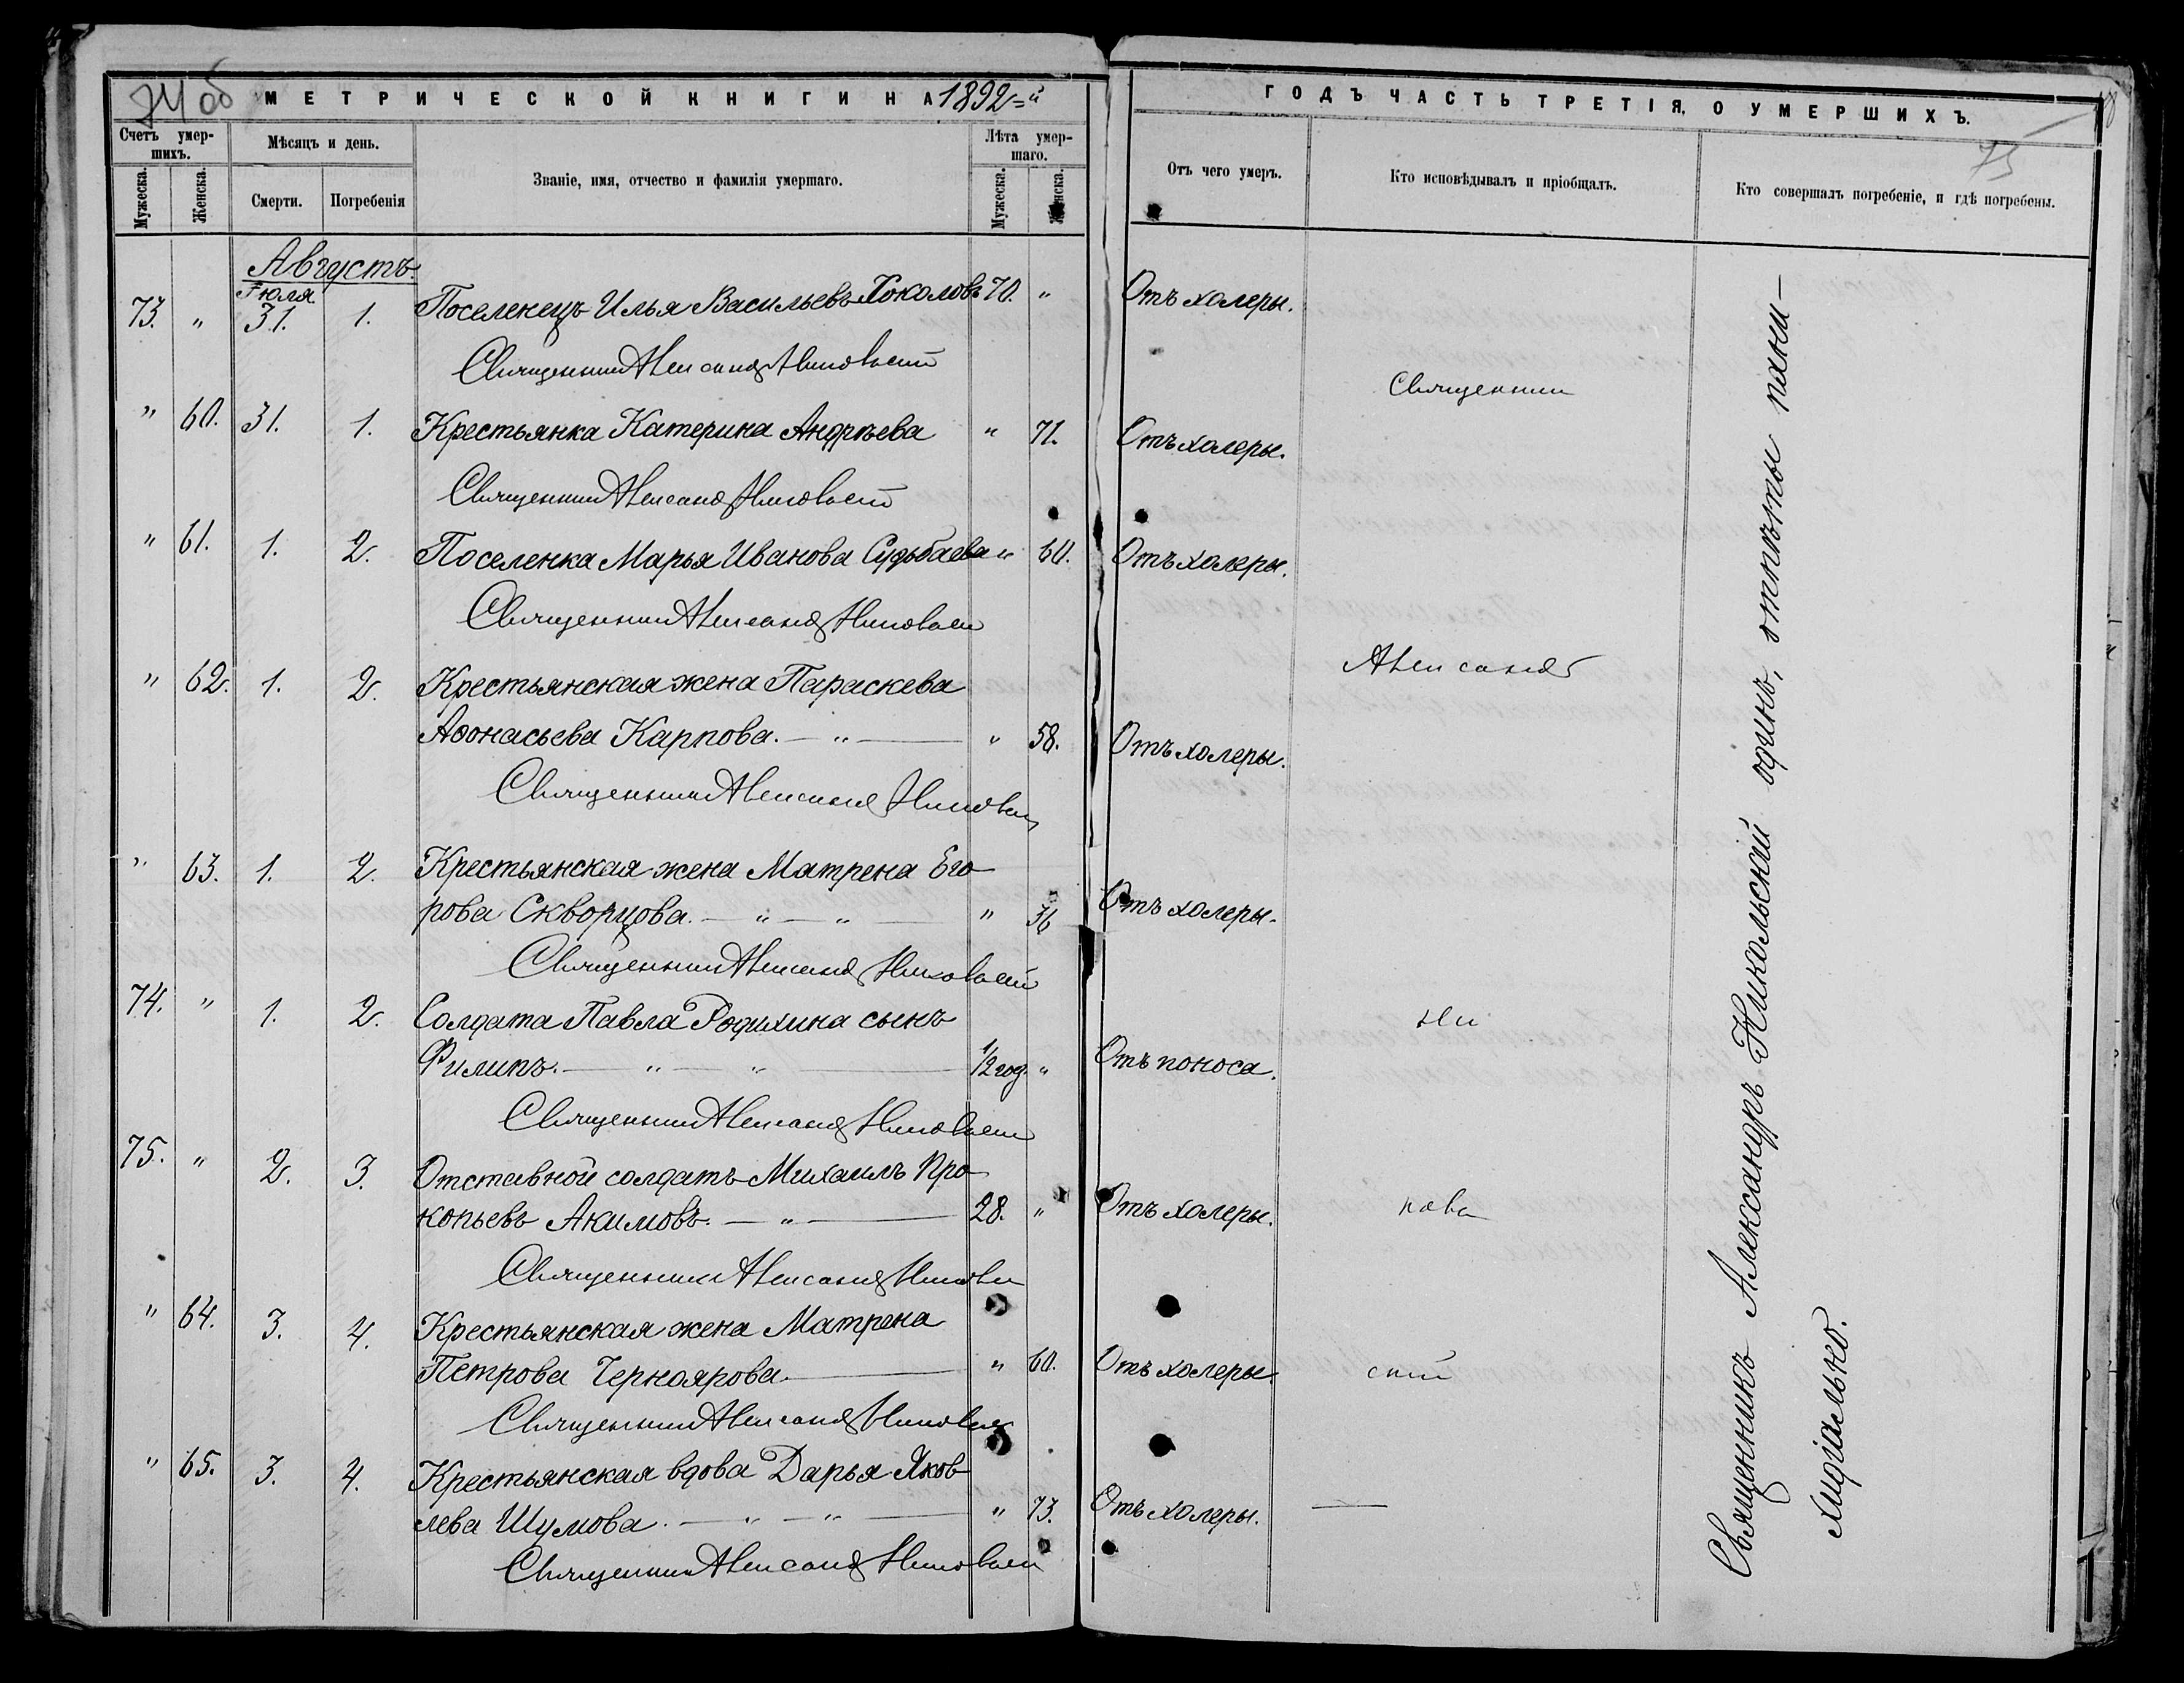 74 об
МЕТРИЧЕСКОЙ КНИГИ НА 1892=й
ГОДЪ ЧАСТЬ ТРЕТІЯ, О УМЕРШИХЪ.
75
Счетъ умер-
шихъ.
Мужеска.
Женска.
Мѣсяцъ и день.
Смерти.
Погребенія
Званіе, имя, отчество и фамилія умершаго.
Лѣта умер-
шаго.
Мужеска.
Женска.
Отъ чего умеръ.
Кто исповѣдывалъ и пріобщалъ.
Кто совершалъ погребеніе, и гдѣ погребены.
Августъ.
Іюля
73. " 31. 1. Поселенецъ Илья Васильевъ Соколовъ 70. " Отъ холеры.
Священникъ Александръ Никольскій
" 60. 31. 1. Крестьянка Катерина Андрѣева " 71. Отъ холеры.
Священникъ Александръ Никольскій
" 61. 1. 2. Поселенка Марья Иванова Судьбаева " 60. Отъ холеры.
Священникъ Александръ Никольскій
" 62. 1. 2. Крестьянская жена Параскева
Аѳонасьева Карпова. — " — " 58. Отъ холеры.
Священникъ Александръ Никольскій
" 63. 1. 2. Крестьянская жена Матрена Его-
рова Скворцова. — " — " — " 36 Отъ холеры.
Священникъ Александръ Никольскій
74. " 1. 2. Солдата Павла Родихина сынъ
Филипъ. — " — " — 1/2 год. " Отъ поноса.
Священникъ Александръ Никольскій
75. " 2. 3. Отставной солдатъ Михаилъ Про-
копьевъ Акимовъ. — " — 28. " Отъ холеры.
Священникъ Александръ Никольскій
" 64. 3. 4. Крестьянская жена Матрена
Петрова Черноярова. — " 60. Отъ холеры.
Священникъ Александръ Никольскій
" 65. 3. 4. Крестьянская вдова Дарья Яков-
лева Шумова. — " — " — " 73. Отъ холеры.
Священникъ Александръ Никольскій
Священникъ
Александръ
Ни
коль
скій
—
Священникъ Александръ Никольскій одинъ, отпѣты пани-
хидіально.